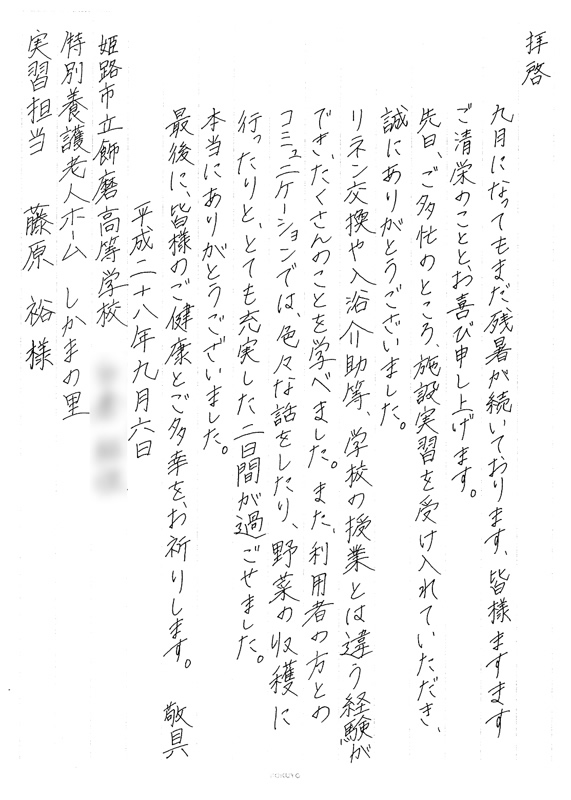 拝啓
九月になってもまだ残暑が続いております、皆様ますます
ご清栄のこととお喜び申し上げます。
先日、ご多忙のところ、施設実習を受け入れていただき、
誠にありがとうございました。
リネン交換や入浴介助等、学校の授業とは違う経験が
でき、たくさんのことを学べました。また、利用者の方との
コミュニケーションでは、色々な話をしたり、野菜の収穫に
行ったりと、とても充実した二日間が過ごせました。
本当にありがとうございました。
最後に、皆様のご健康とご多幸を、お祈りします。 敬具
平成二十八年九月六日
姫路市立飾磨高等学校
特別養護老人ホーム しかまの里
実習担当 藤原 裕様